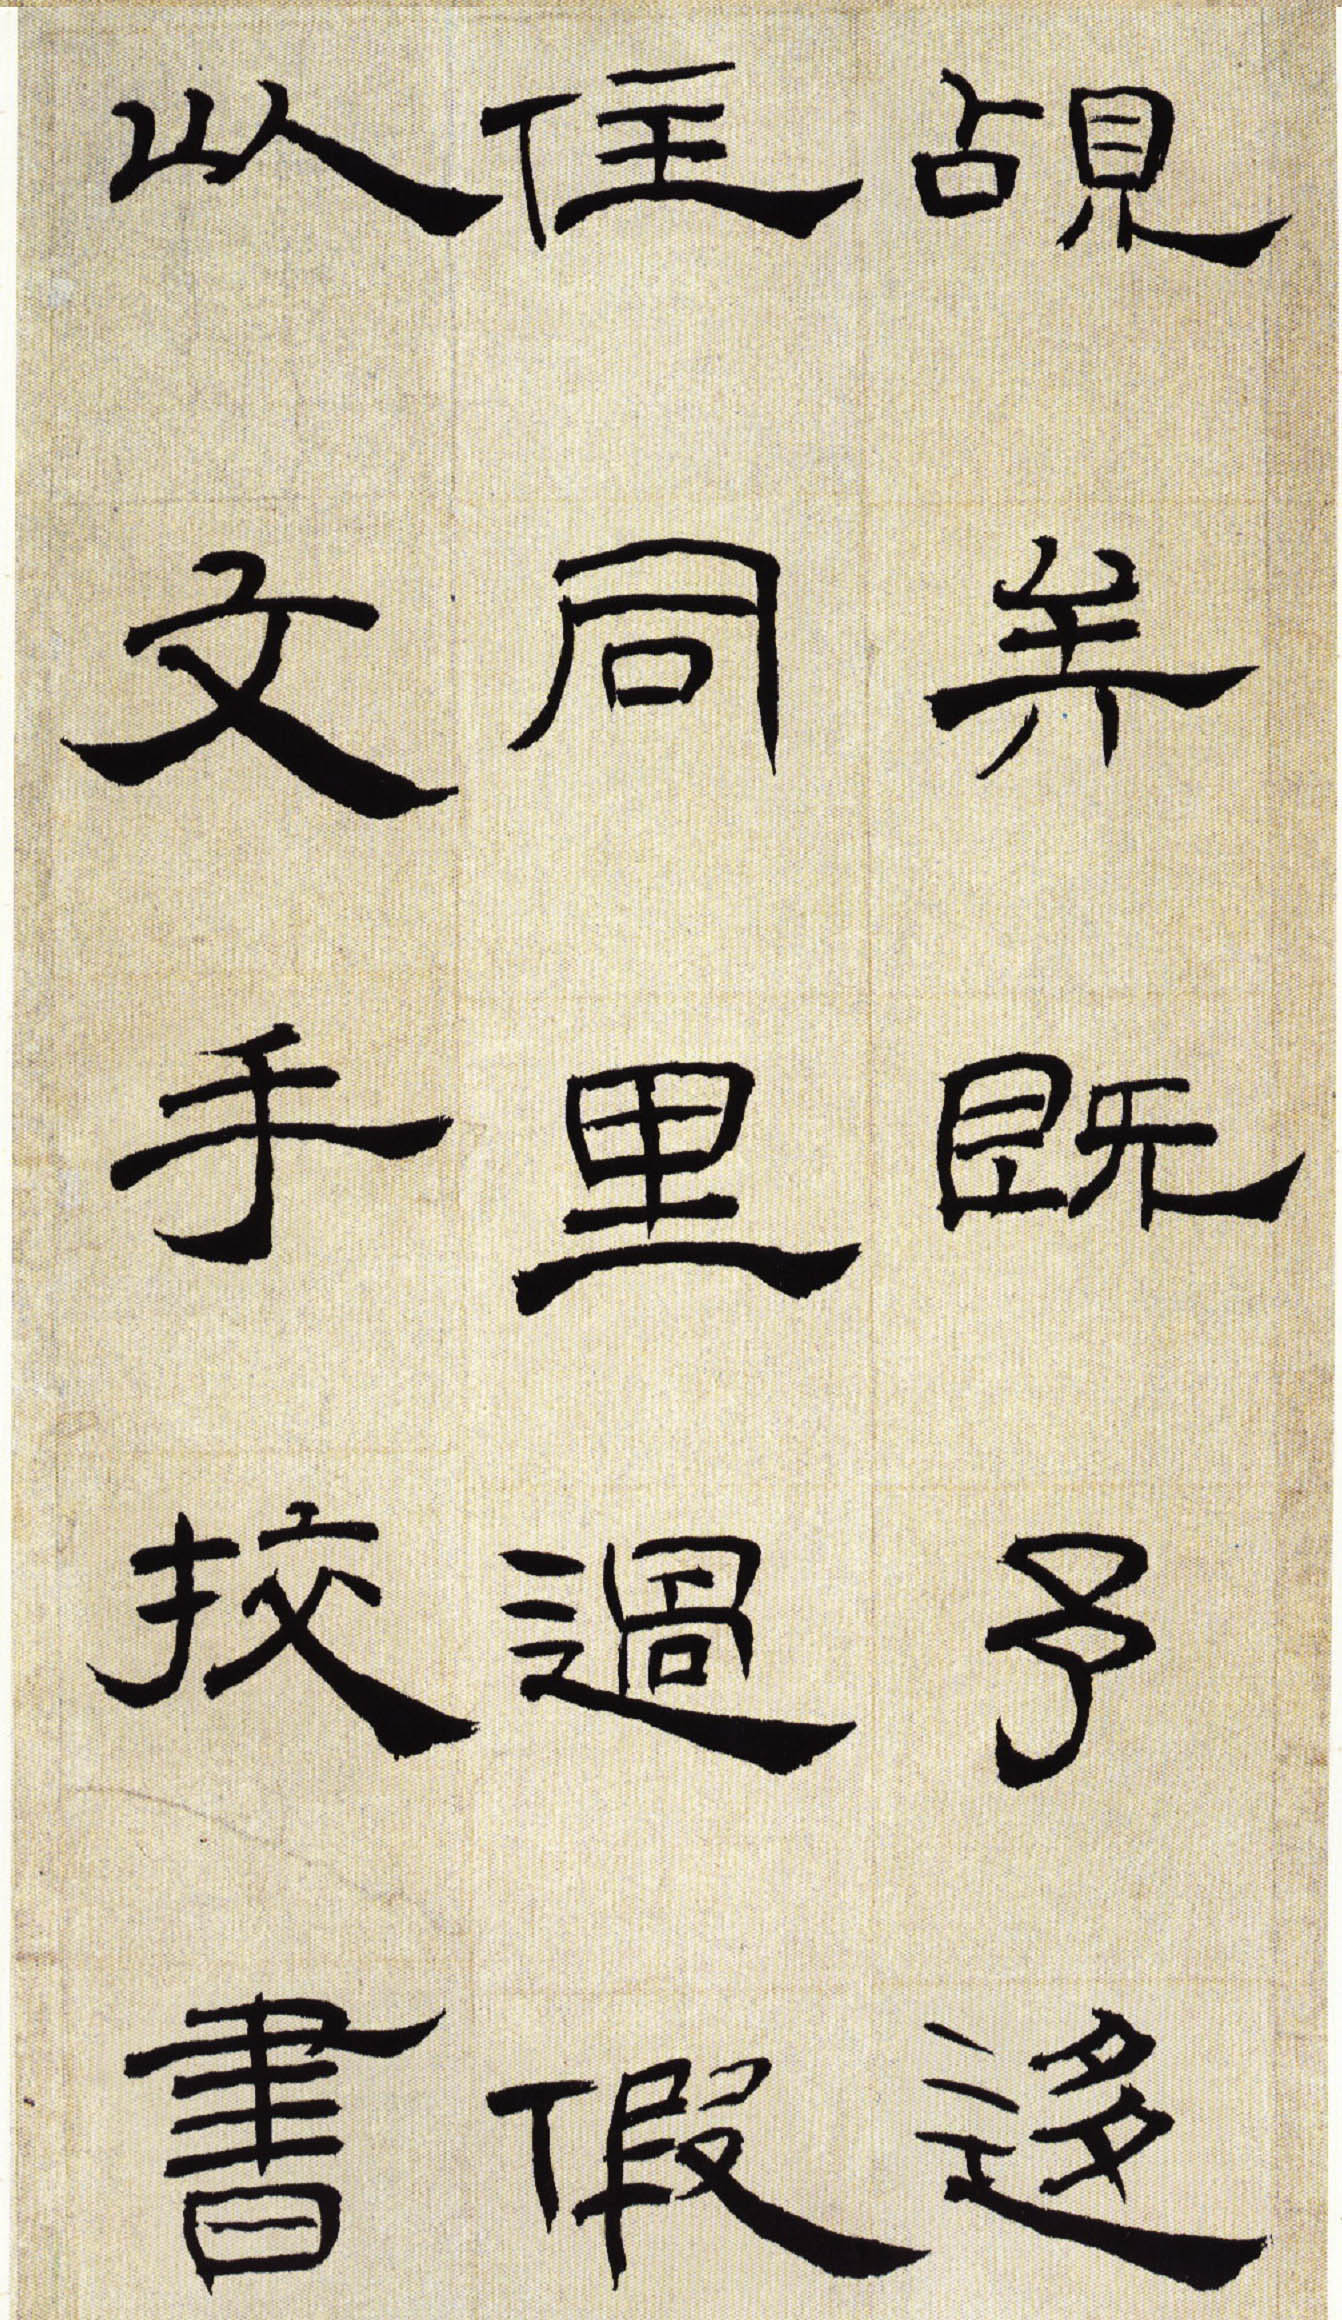 覘矣既予迻
住同里過假
以文手挍書